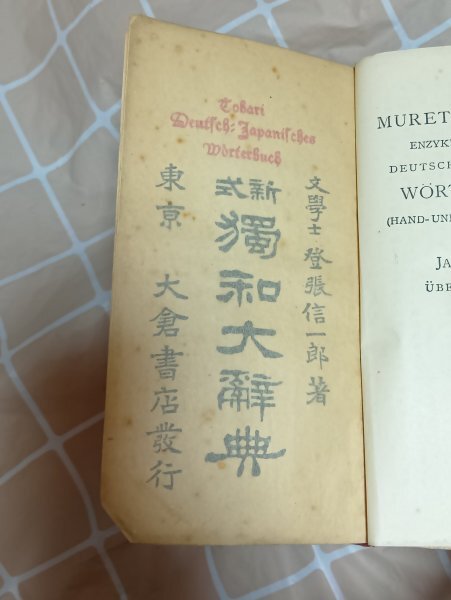 Tobari
Deutsch-Japanisches
Wörterbuch
文學士 登張信一郎著
新式
獨和大辭典
東京 大倉書店發行
MURET
ENZYK
DEUTSCH
WÖRT
(HAND-UN
JA
ÜBE